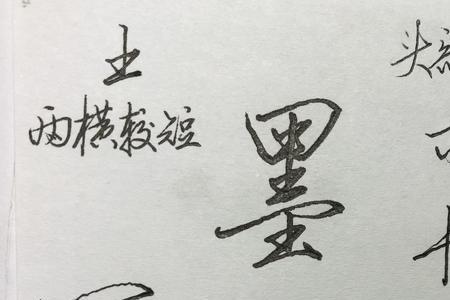 土
两横较短
墨
头